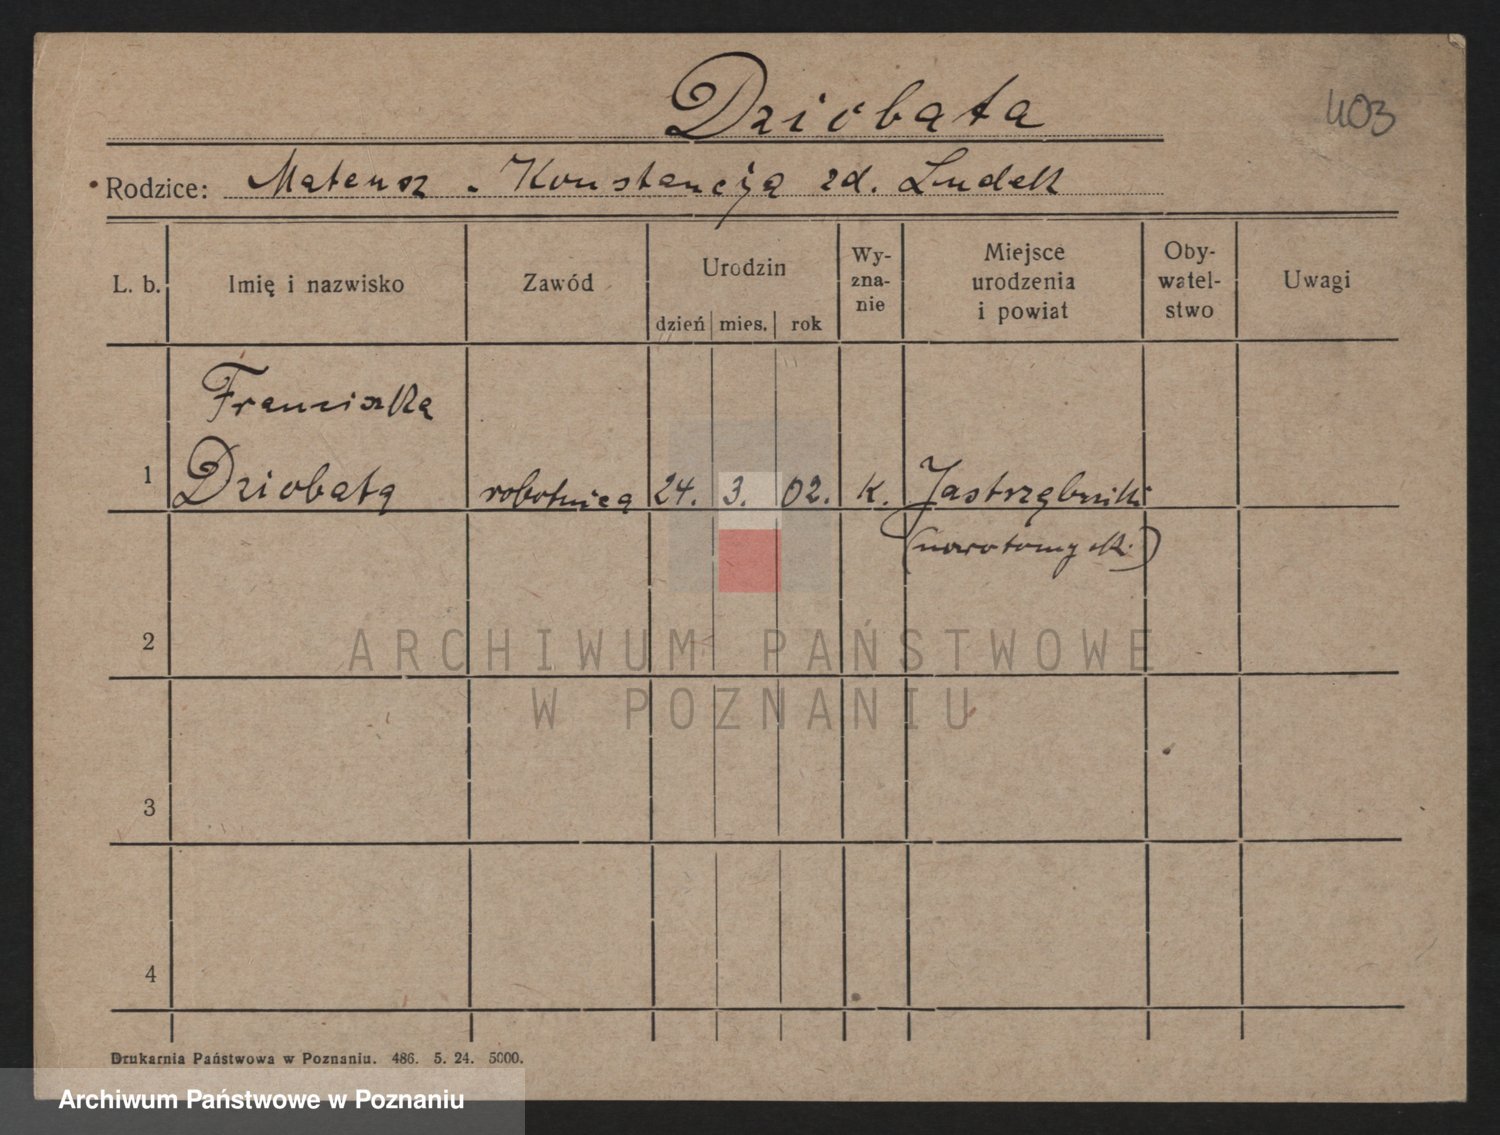 Dziobata
403
Rodzice: Mateusz - Konstancja zd. Ludek
L. b.
Imię i nazwisko
Zawód
Urodzin
dzień mies. rok
Wy-
zna-
nie
Miejsce
urodzenia
i powiat
Oby-
watel-
stwo
Uwagi
Franciszka
1 Dziobata robotnica 24. 3. 02. K. Jastrzębniki
(nowotomysk.)
2
ARCHIWUM PAŃSTWOWE
W POZNANIU
3
4
Drukarnia Państwowa w Poznaniu. 486. 5. 24. 5000.
Archiwum Państwowe w Poznaniu